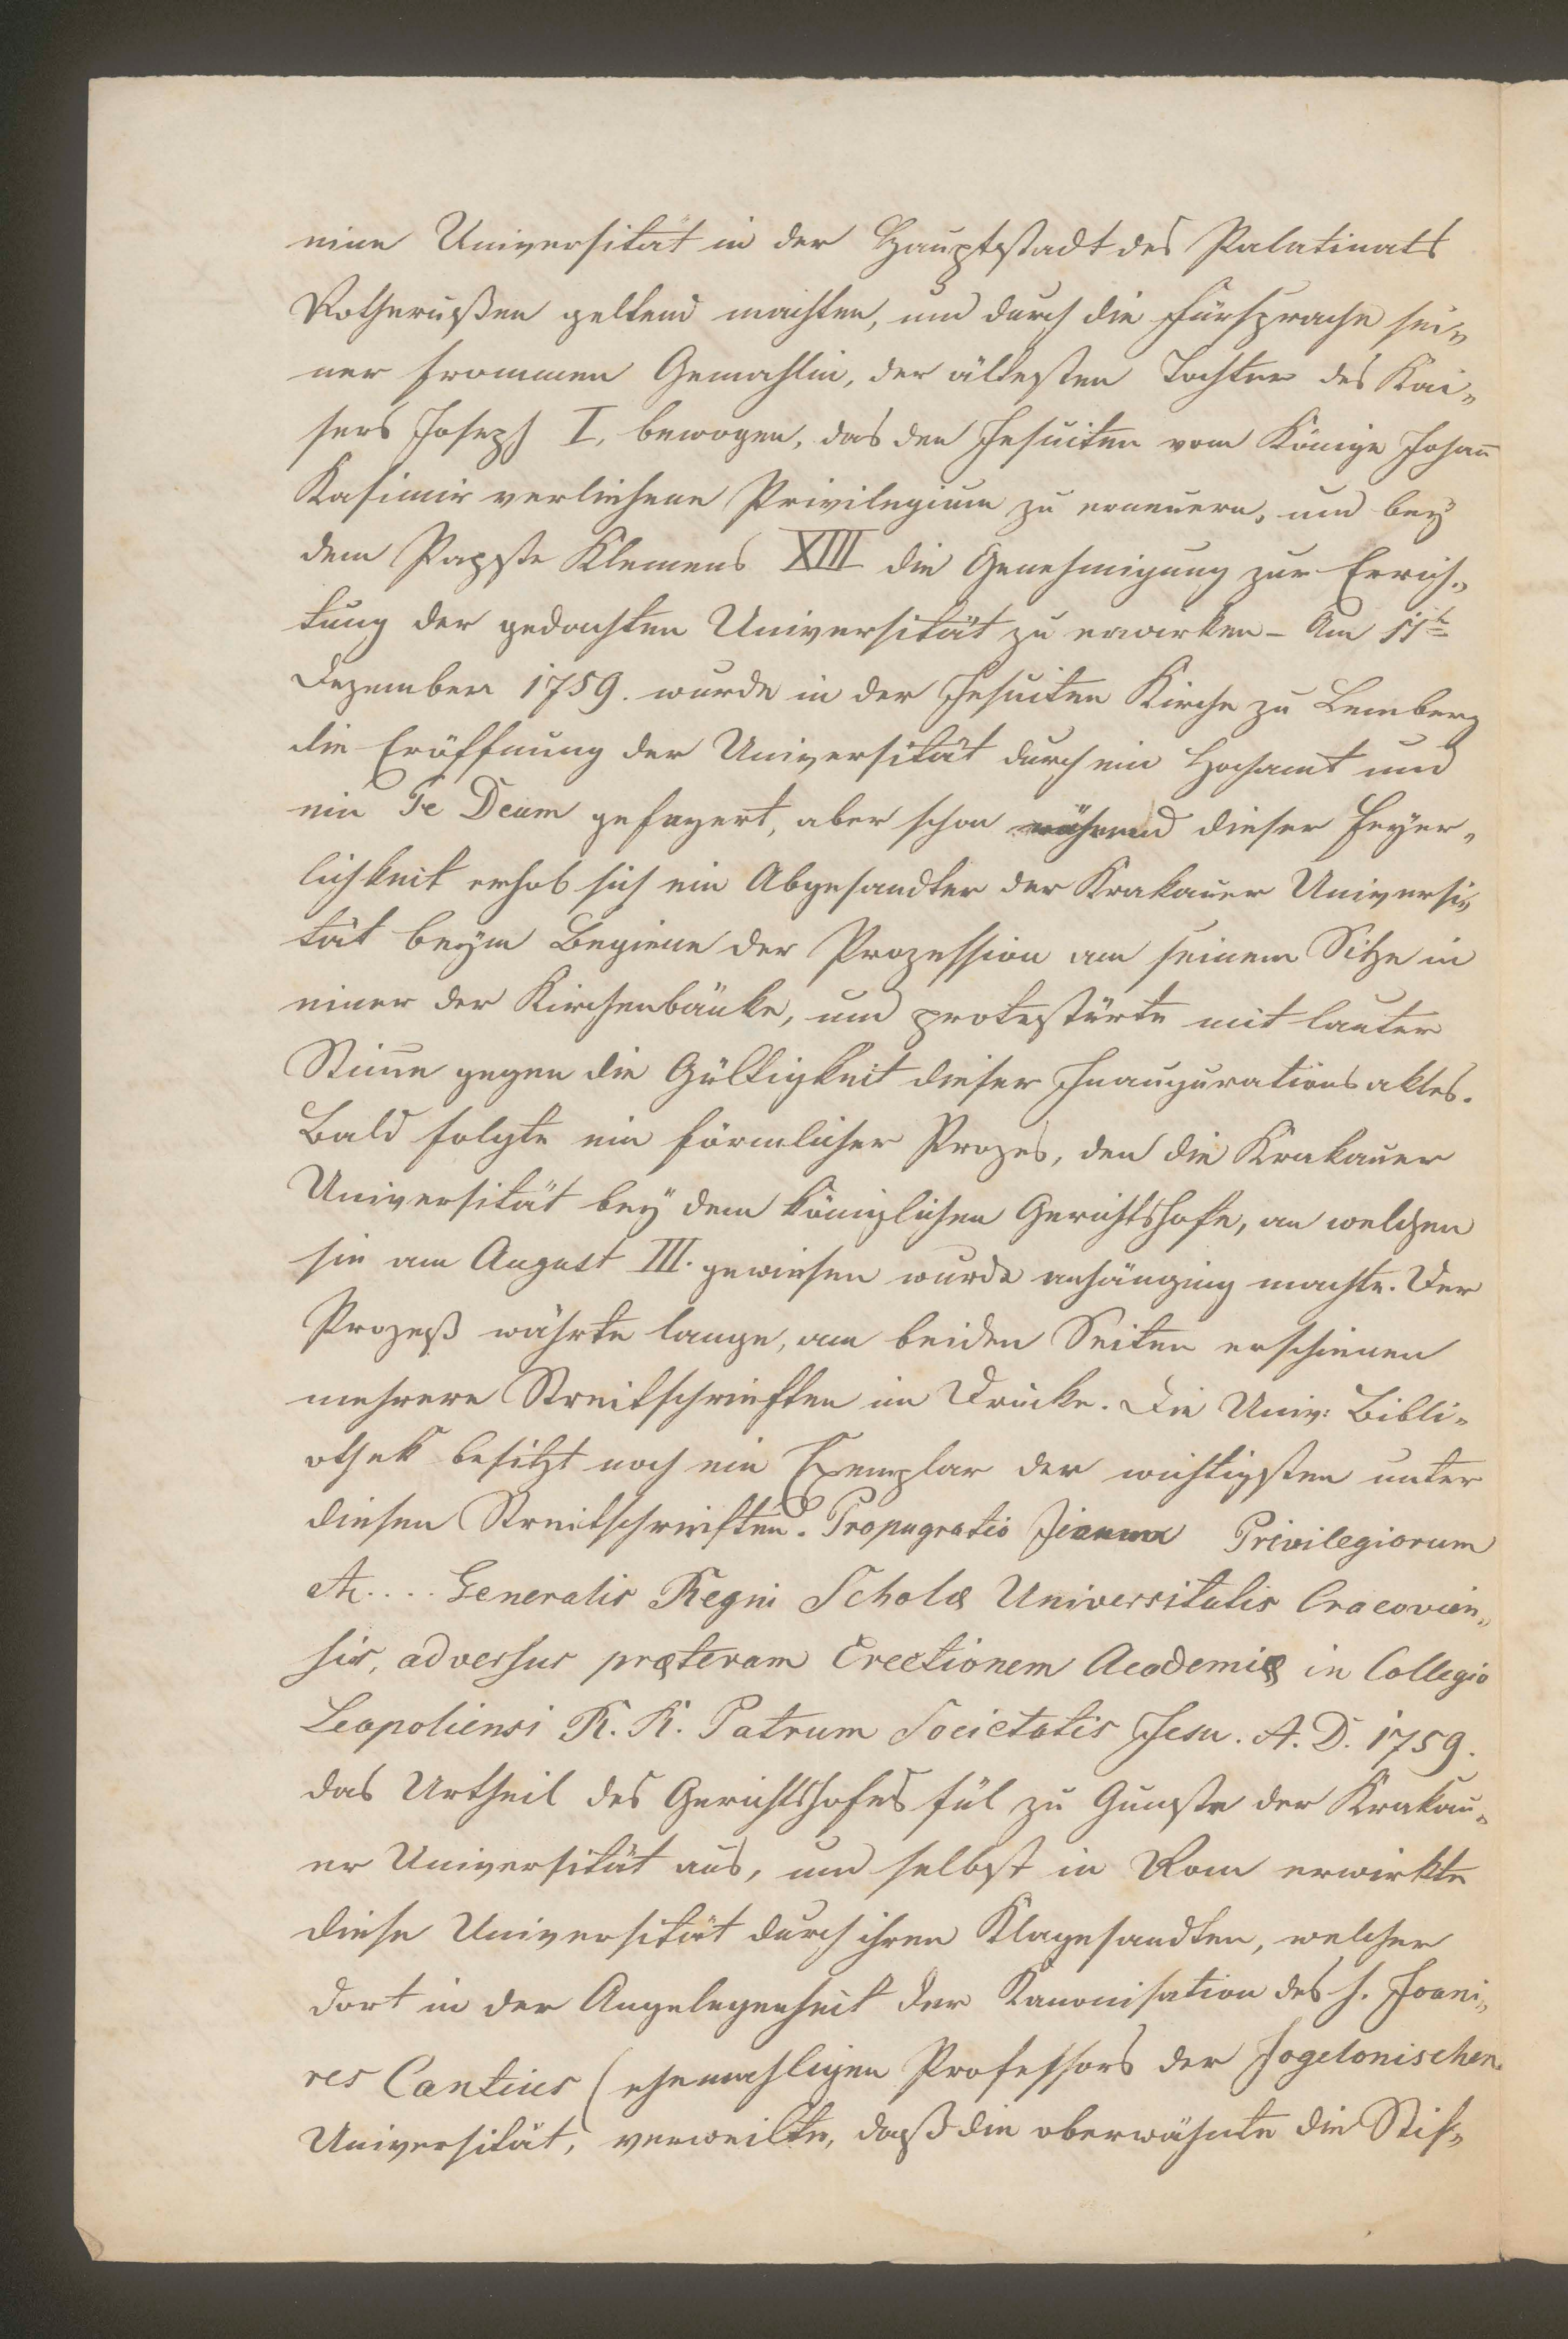 eine Universität in der Hauptstadt des Palatinats
Rothreußen geltend machten, und durch die Fürsprache sei„
ner frommen Gemahlin, der ältesten Tochter des Kai„
sers Joseph I, bewogen, das den Jesuiten vom Könige Johan̅
Kasimir verliehene Privilegium zu erneuern, und bey
dem Papste Klemens XIII die Genehmigung zur Errich„
tung der gedachten Universität zu erwirken – Am 11t
Dezember 1759. wurde in der Jesuiten Kirche zu Lemberg
die Eröffnung der Universität durch ein Hochamt und
ein Te Deum gefeyert, aber schon während dieser Feyer„
lichkeit erhob sich ein Abgesandter der Krakauer Universi„
tät beym Beginne der Prozession von seinem Sitze in
einer der Kirchenbänke, und protestirte mit lauter
Stim̅e gegen die Gültigkeit dieser Inaugurationsaktes.
Bald folgte ein förmlicher Prozes, den die Krakauer
Universität bey dem königlichen Gerichtshofe, an welchen
sie von August III. gewiesen wurde anhängig machte. Der
Prozeß währte lange, von beiden Seiten erschienen
mehrere Streitschrieften im Drucke. Die Univ: Bibli„
othek besitzt noch ein Exemplar der wichtigsten unter
diesen Streitschrieften. Propugratio Privilegiorum
etc.... Generalis Regni Scholæ Universitatis Cracovien„
sis, adversus præteram Erectionem Academiæ in Collegio
Leopoliensi R. R. Patrum Societatis Jesu. A. D. 1759.
das Urtheil des Gerichtshofes fül zu Gunste der Krakau„
er Universität aus, und selbst in Rom erwirkte
diese Universität durch ihren Klagesandten, welcher
dort in der Angelegenheit der Kanonisation des h. Joani„
res Cantius (ehemahligen Professors der Jogelonischen
Universität, verweilte, daß die oberwähnte die Stif„